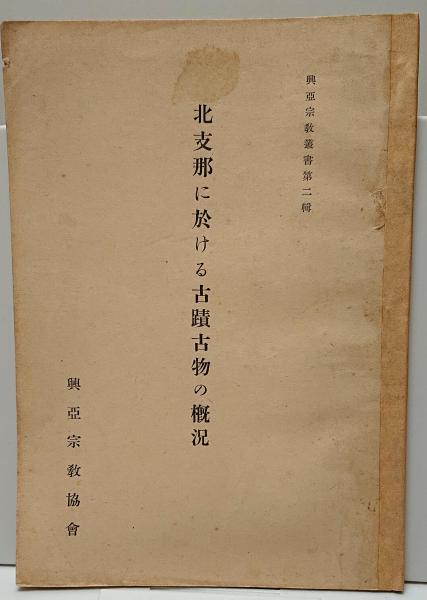 興亞宗教叢書第二輯
北支那に於ける古蹟古物の概況
興亞宗教協會